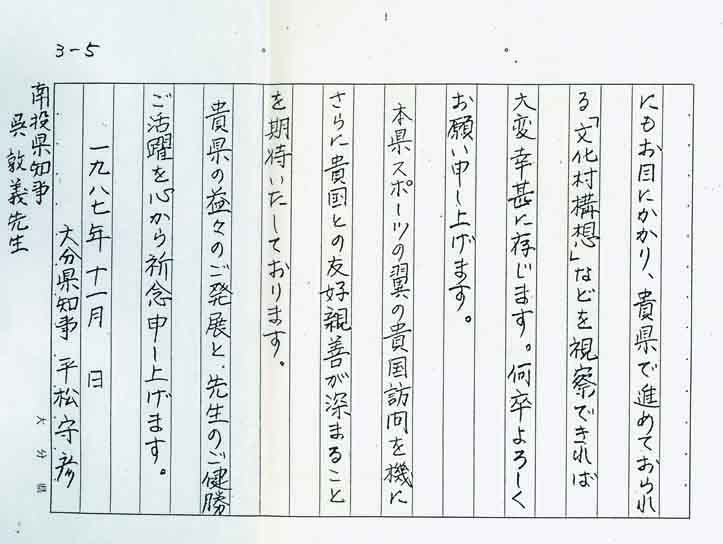 3-5
にもお目にかかり、貴県で進めておられ
る「文化村構想」などを視察できれば
大変幸甚に存じます。何卒よろしく
お願い申し上げます。
本県スポーツの翼の貴国訪問を機に
さらに貴国との友好親善が深まること
を期待いたしております。
貴県の益々のご発展と、先生のご健勝
ご活躍を心から祈念申し上げます。
一九八七年十一月　日
大分県知事　平松守彦
南投県知事
呉敦義先生
大分県